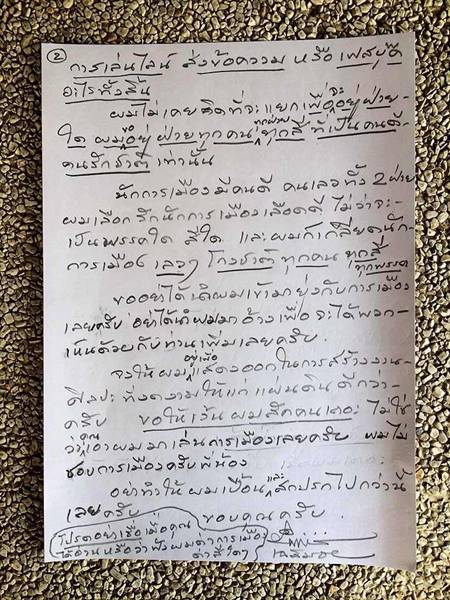 ②
การเล่นไลน์ ส่งข้อความ หรือ เฟสบุ๊ค
อะไรทั้งสิ้น
ผมไม่เคยคิดที่จะแยกเพื่อจะอยู่ฝ่าย-
ใด ผมขออยู่ฝ่ายทุกคน ทุกฝ่าย ทุกสี ที่เป็นคนดี-
คนรักชาติ เท่านั้น
นักการเมืองมีคนดี คนเลวทั้ง 2 ฝ่าย
ผมเลือกรักนักการเมืองเลือดดี ไม่ว่าจะ-
เป็นพรรคใด สีใด และผมก็เกลียดนัก-
การเมือง เลวๆ โกงชาติ ทุกคน ทุกสี
ทุกพรรค
ขออย่าได้นำผมเข้ามายุ่งกับการเมือง
เลยครับ อย่าได้นำผมมาอ้างเพื่อจะได้พวก-
เห็นด้วยกับท่านเพิ่มเลยครับ.
จงให้ผมอยู่เพื่อแสดงออกในการสร้างงาน-
ศิลปะ ที่งดงามให้แก่แผ่นดินดีกว่า-
ครับ ขอให้เว้นผมสักคนเถอะ ไม่ใช่
ว่าคุณเอาผมมาเล่นการเมืองเลยครับ ผมไม่
ชอบการเมืองครับพี่น้อง
อย่าทำให้ผมเปื้อนและสกปรกไปกว่านี้
เลยครับ ขอบคุณครับ.
โปรดอย่าเชื่อเมื่อคุณ
ได้อ่านหรือว่าฟังผมด่าการเมือง
ด่าสีใดๆ
เฉลิมชัย